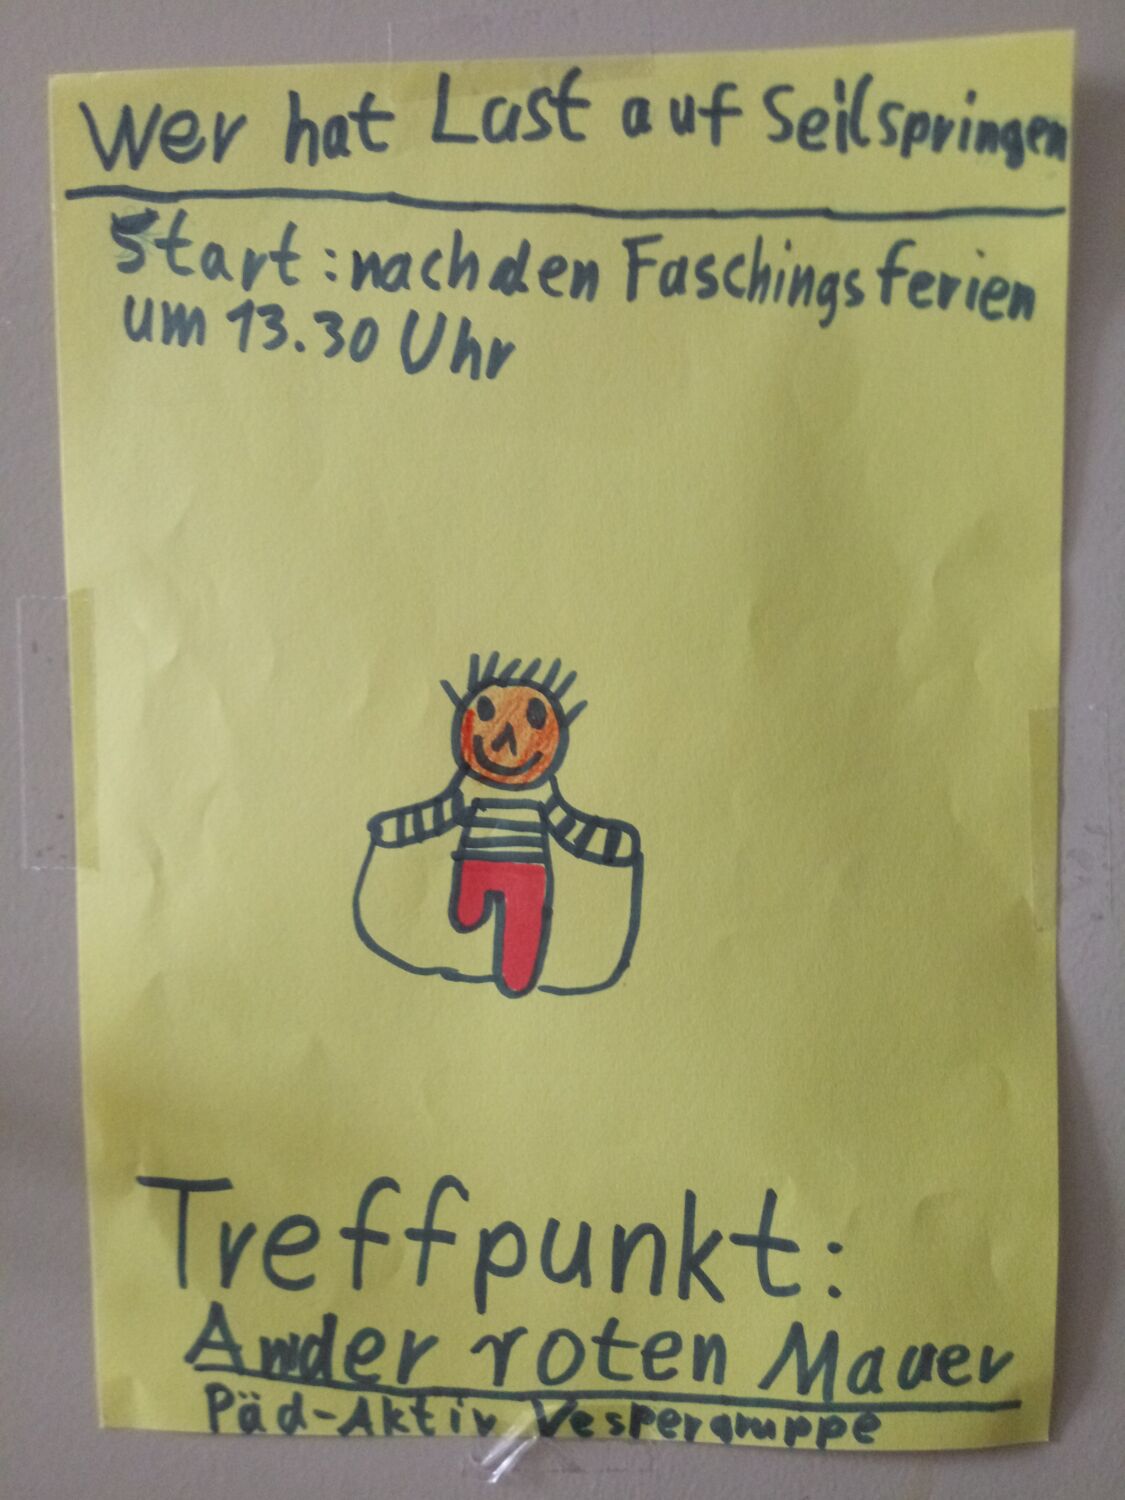 Wer hat Lust auf Seilspringen
Start: nach den Faschingsferien
um 13.30 Uhr
Treffpunkt:
An der roten Mauer
Päd-Aktiv Vespergruppe